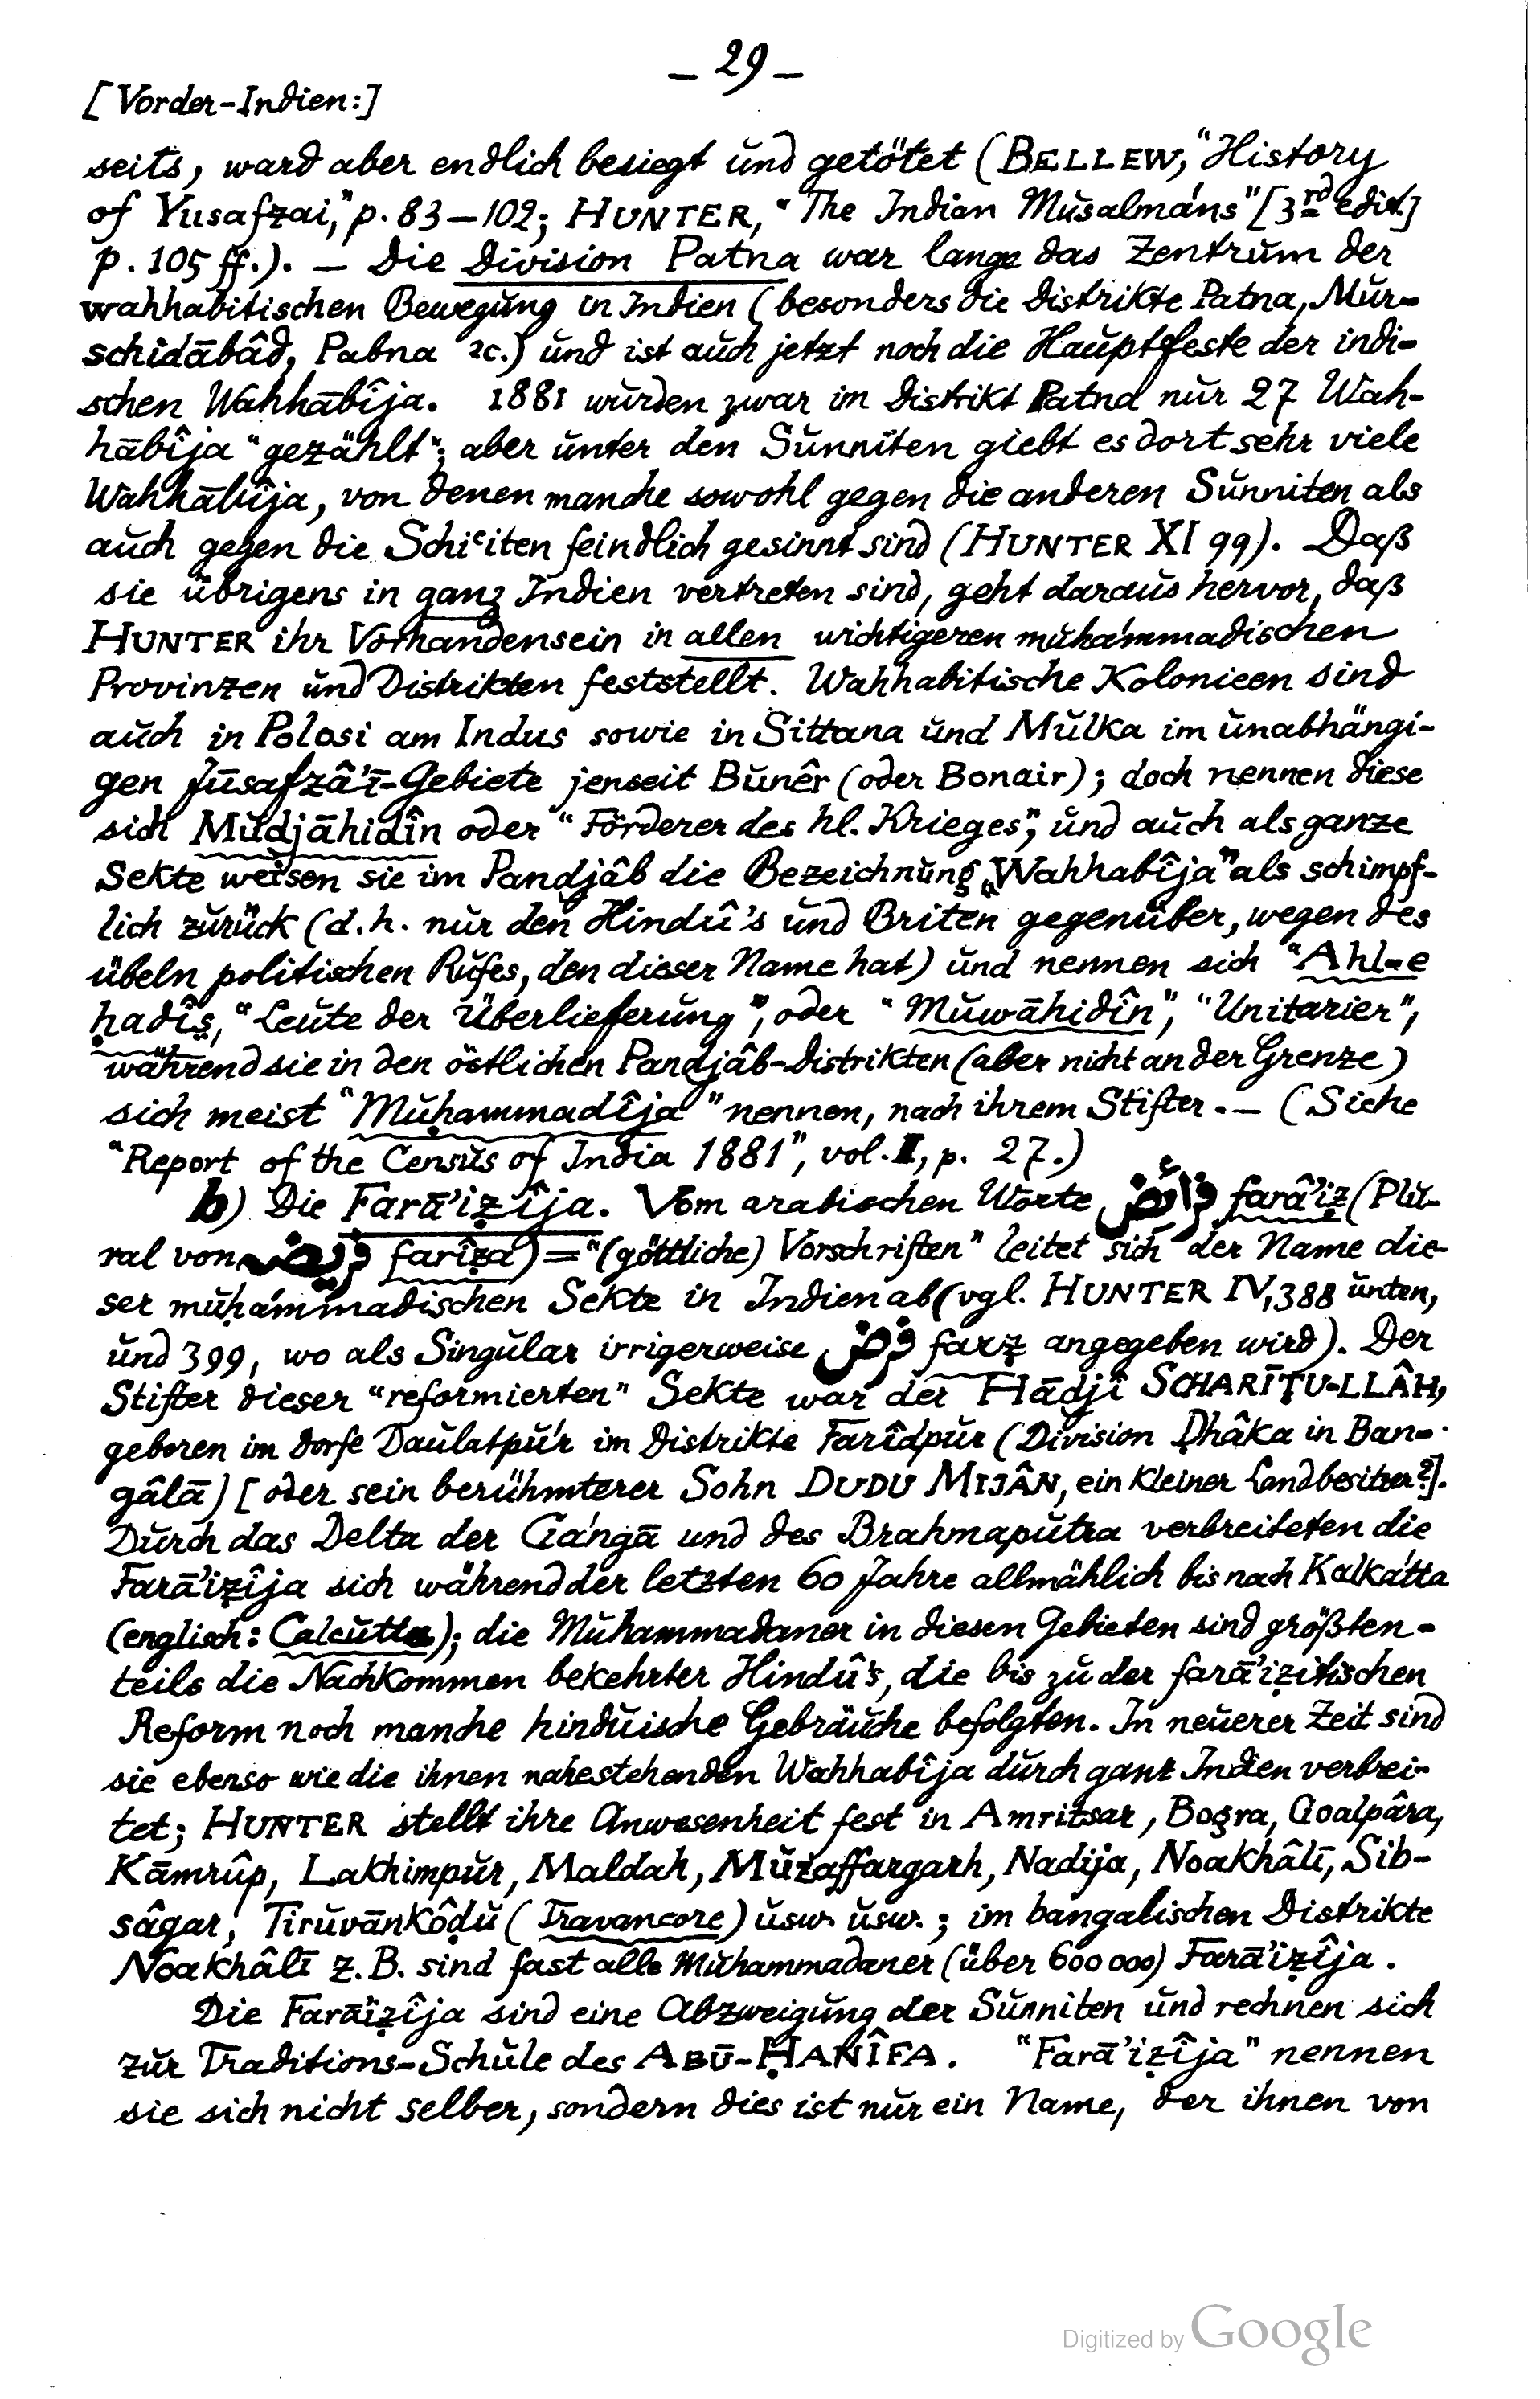 – 29 –
[Vorder-Indien:]
seits, ward aber endlich besiegt und getötet (BELLEW, "History
of Yusafzai," p. 83–102; HUNTER, "The Indian Musalmáns" [3rd edit.]
p. 105 ff.). – Die Division Patna war lange das Zentrum der
wahhabitischen Bewegung in Indien (besonders die Distrikte Patna, Mur-
schidābâd, Pabna ꝛc.) und ist auch jetzt noch die Hauptfeste der indi-
schen Wahhābîja. 1881 wurden zwar im Distrikt Patna nur 27 Wah-
hābîja "gezählt"; aber unter den Sunniten giebt es dort sehr viele
Wahhābîja, von denen manche sowohl gegen die anderen Sunniten als
auch gegen die Schiʿiten feindlich gesinnt sind (HUNTER XI 99). Daß
sie übrigens in ganz Indien vertreten sind, geht daraus hervor, daß
HUNTER ihr Vorhandensein in allen wichtigeren muhámmadischen
Provinzen und Distrikten feststellt. Wahhabitische Kolonieen sind
auch in Polosi am Indus sowie in Sittana und Mulka im unabhängi-
gen Jūsafzâ'ī-Gebiete jenseit Bunêr (oder Bonair); doch nennen diese
sich Mudjāhidîn oder "Förderer des hl. Krieges", und auch als ganze
Sekte weisen sie im Pandjâb die Bezeichnung „Wahhabîja" als schimpf-
lich zurück (d.h. nur den Hindû's und Briten gegenüber, wegen des
übeln politischen Rufes, den dieser Name hat) und nennen sich "Ahl-e
ḥadîs̱, "Leute der Überlieferung", oder "Muwāhidîn", "Unitarier",
während sie in den östlichen Pandjâb-Distrikten (aber nicht an der Grenze)
sich meist "Muḥammadîja" nennen, nach ihrem Stifter. – (Siehe
"Report of the Census of India 1881", vol. II, p. 27.)
b) Die Farā'iẓîja. Vom arabischen Worte فرائض farâ'iẓ (Plu-
ral von فريضه farîẓa) = "(göttliche) Vorschriften" leitet sich der Name die-
ser muḥámmadischen Sekte in Indien ab (vgl. HUNTER IV, 388 unten,
und 399, wo als Singular irrigerweise فرض farẓ angegeben wird). Der
Stifter dieser "reformierten" Sekte war der Hādjî SCHARĪTU-LLÂH,
geboren im Dorfe Daulatpúr im Distrikte Farîdpur (Division Ḍhâka in Ban-
gâlā) [oder sein berühmterer Sohn DUDU MIJÂN, ein kleiner Landbesitzer?].
Durch das Delta der Gángā und des Brahmaputra verbreiteten die
Farā'iẓîja sich während der letzten 60 Jahre allmählich bis nach Kalkátta
(englisch: Calcutta); die Muhammadaner in diesen Gebieten sind größten-
teils die Nachkommen bekehrter Hindû's, die bis zu der farā'iẓitischen
Reform noch manche hinduische Gebräuche befolgten. In neuerer Zeit sind
sie ebenso wie die ihnen nahestehenden Wahhabîja durch ganz Indien verbrei-
tet; HUNTER stellt ihre Anwesenheit fest in Amritsar, Bogra, Goalpâra,
Kāmrûp, Lakhimpur, Maldah, Muzaffargarh, Nadija, Noakhâlī, Sib-
sâgar, Tiruvānkôḍu (Travancore) usw. usw.; im bangalischen Distrikte
Noakhâlī z. B. sind fast alle Muhammadaner (über 600 000) Farā'iẓîja.
Die Farā'iẓîja sind eine Abzweigung der Sunniten und rechnen sich
zur Traditions-Schule des ABŪ-ḤANÎFA. "Farā'iẓîja" nennen
sie sich nicht selber, sondern dies ist nur ein Name, der ihnen von
Digitized by Google